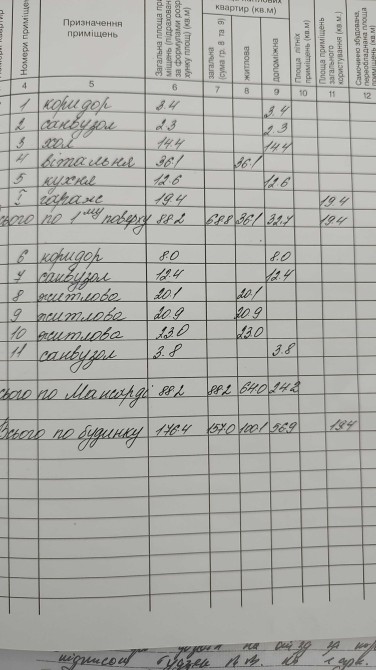 квартир (кв.м)
Номери приміщень
Призначення приміщень
загальна (сума гр. 8 та 9)
житлова
допоміжна
Площа літніх приміщень (кв.м)
Площа приміщень загального користування (кв.м.)
4 5 6 7 8 9 10 11 12
1 коридор 3.4 3.4
2 санвузол 2.3 2.3
3 хол 14.4 14.4
4 вітальня 36.1 36.1
5 кухня 12.6 12.6
I гараж 19.4 19.4
сього по 1му поверху 88.2 68.8 36.1 32.7 19.4
6 коридор 8.0 8.0
7 санвузол 12.4 12.4
8 житлова 20.1 20.1
9 житлова 20.9 20.9
10 житлова 23.0 23.0
11 санвузол 3.8 3.8
сього по Мансарді 88.2 88.2 64.0 24.2
Всього по будинку 176.4 157.0 100.1 56.9 19.4